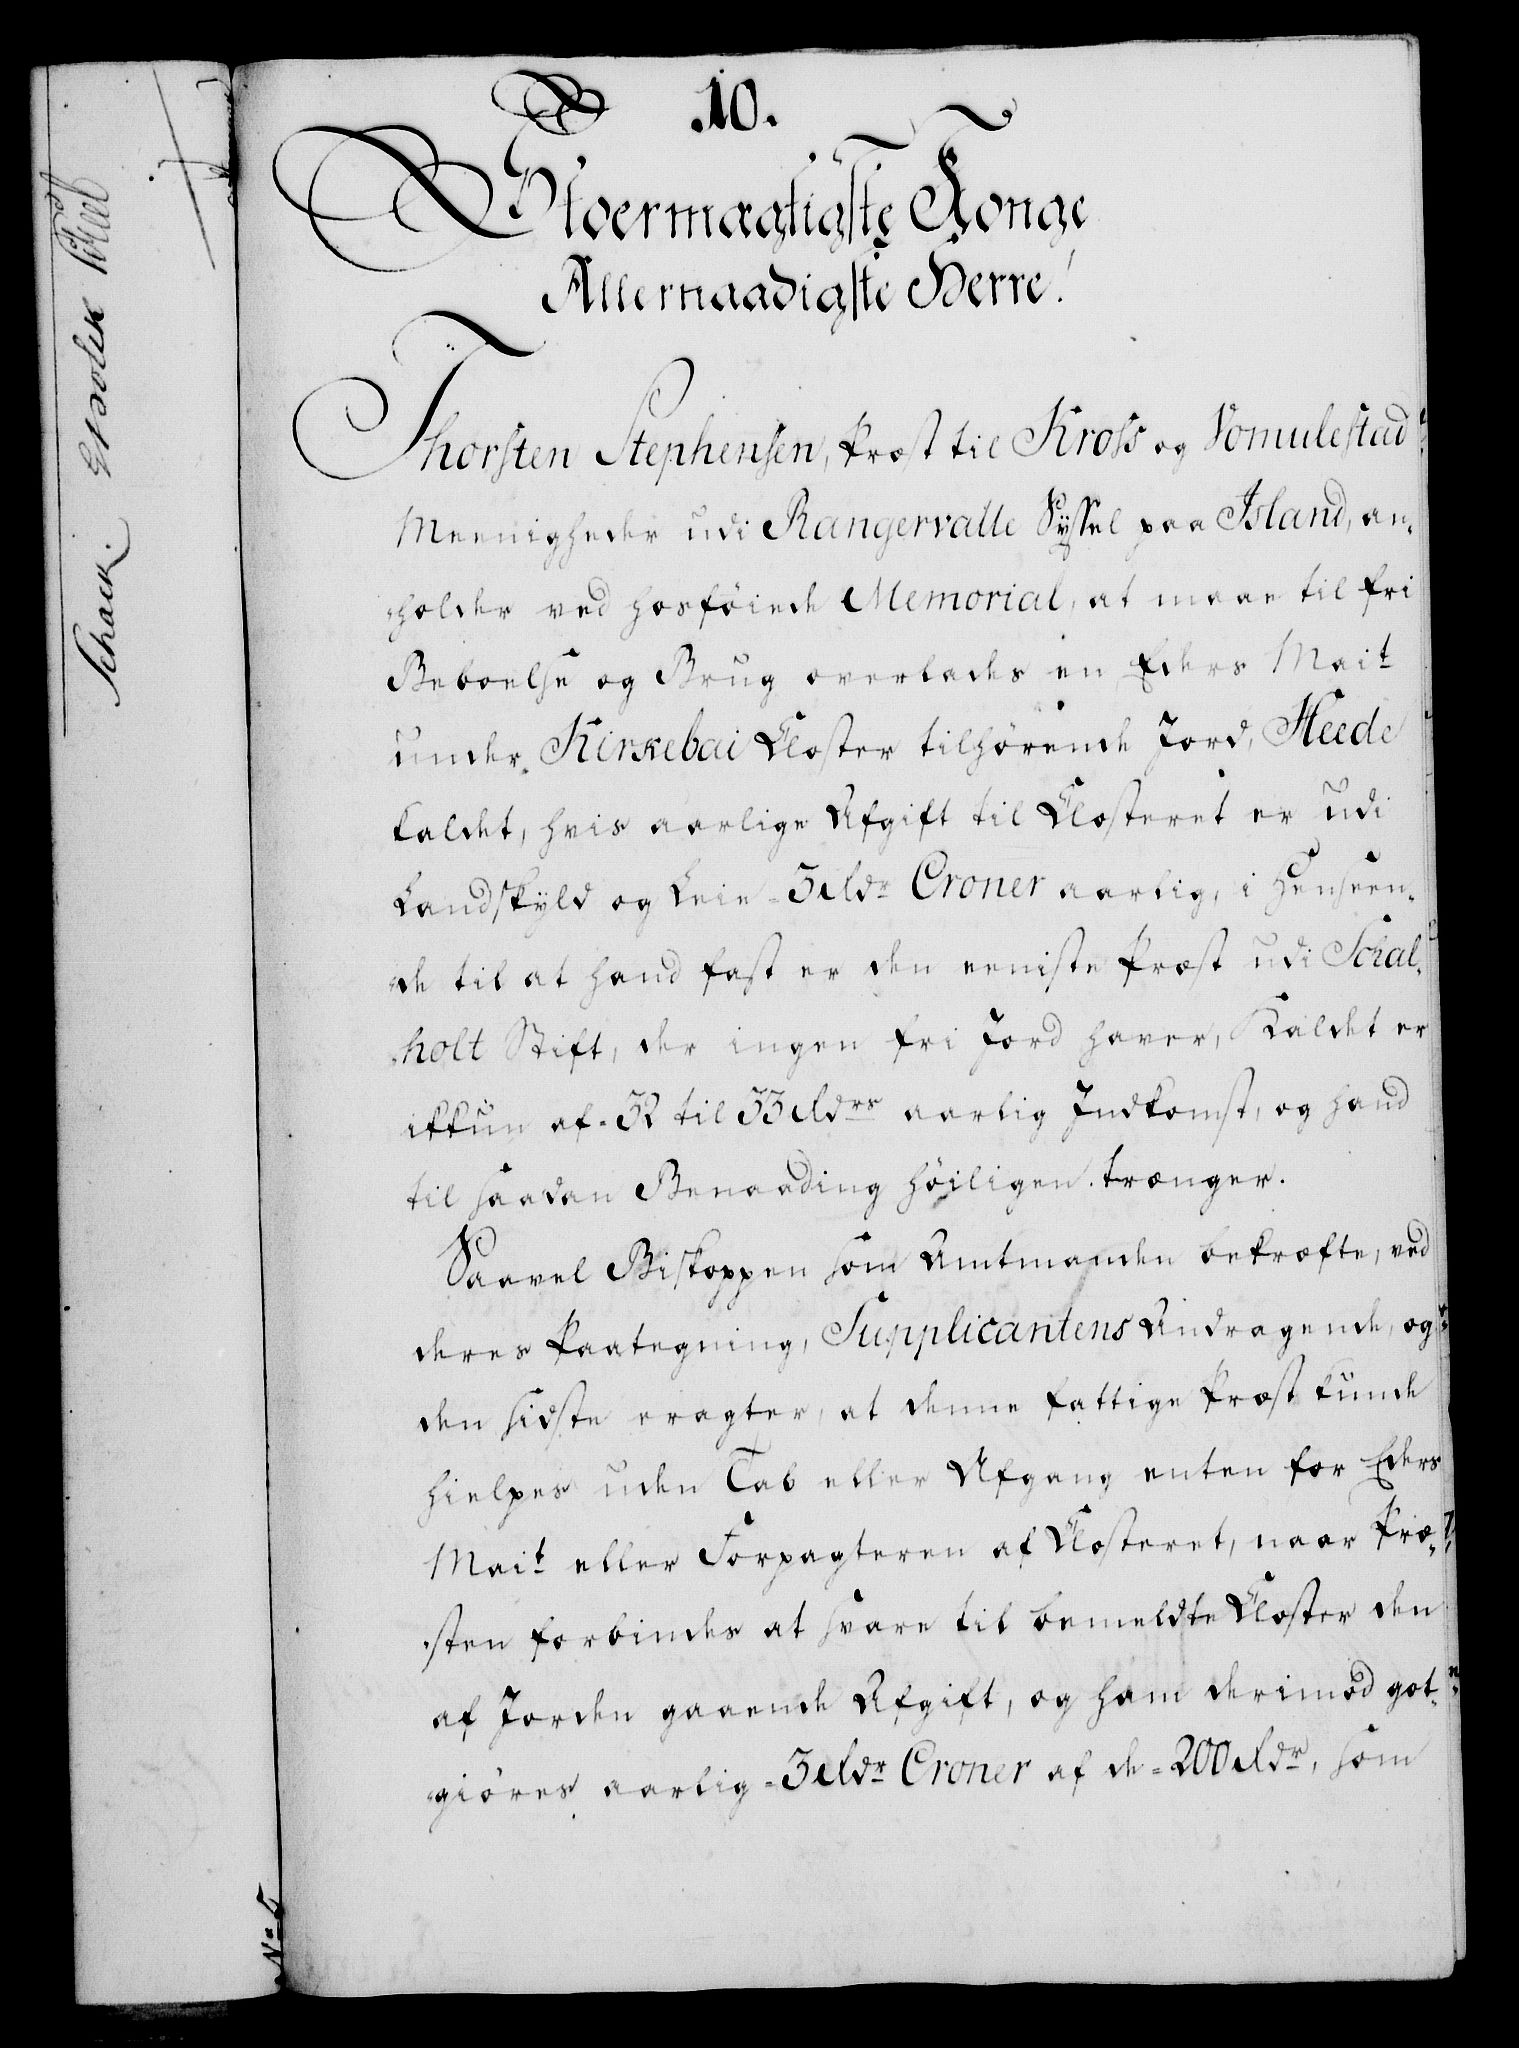 10.
Stoermægtigste Konge
Allernaadigste Herre!
Thorsten Stephensen, Præst til Kross og Vomulestad
Meenigheder udi Rangervalle Syssel paa Island, an-
holder ved hosføiede Memorial, at maae til fri
Beboelse og Brug overlades en Eders Mait
under Kirkebai Closter tilhørende Jord, Heede
kaldet, hvis aarlige Afgift til Closteret er udi
Landskyld og Leie 3 Rdr Croner aarlig, i henseen-
de til at hand fast er den eeniste Præst udi Schal-
holt Stift, der ingen fri Jord haver, Kaldet er
ikkun af 32 til 33 Rdrs aarlig Indkomst, og hand
til saadan Benaading høiligen trænger.
Saavel Biskoppen som Amtmanden bekræfte, ved
deres Paategning, Supplicantens Andragende, og
den sidste eragter, at denne fattige Præst kunde
hielpes uden Tab eller Afgang enten for Eders
Mait eller Forpagteren af Closteret, naar Præ-
sten forbindes at svare til bemeldte Closter den
af Jorden gaaende Afgift, og ham derimod got-
giøres aarlig 3 Rdr Croner af de 200 Rdr, som
Schack.
No 5